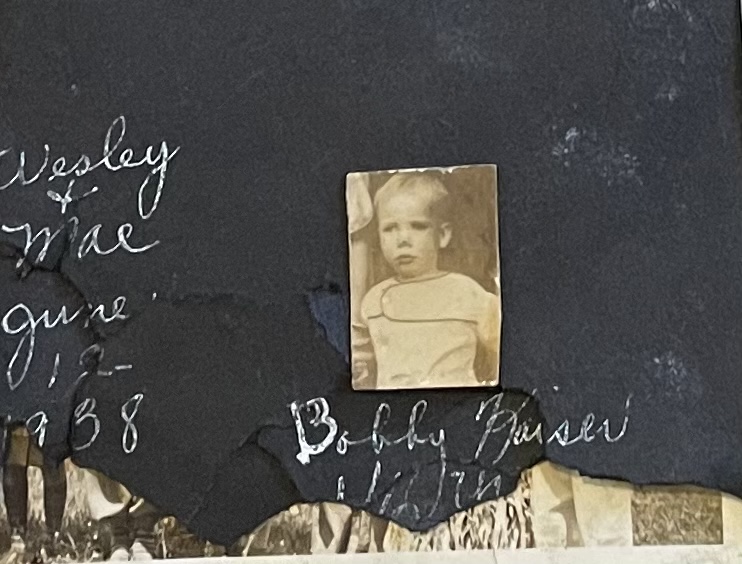 Wesley
+
Mae
June
12
1938
Bobby Kaiser